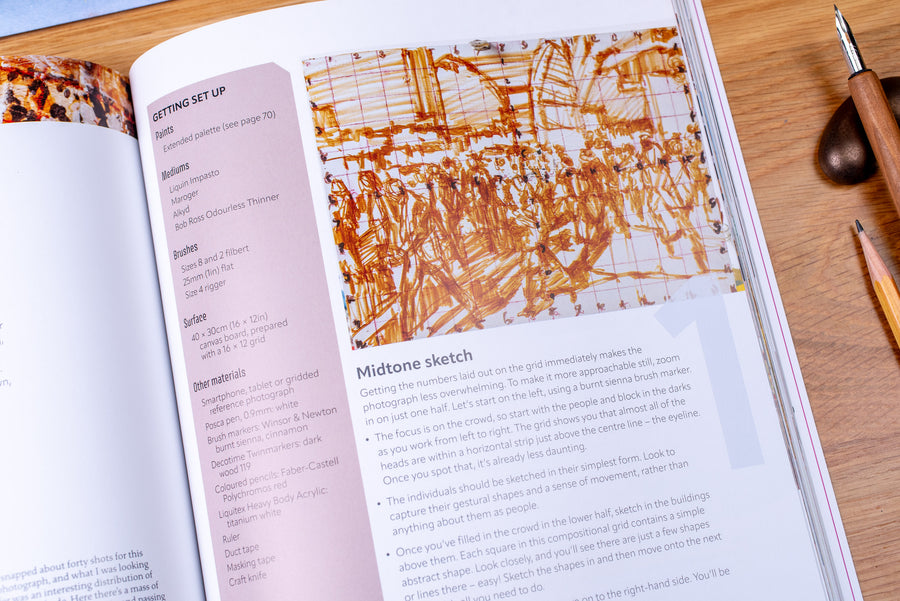 GETTING SET UP
Paints
Extended palette (see page 70)
Mediums
Liquin Impasto
Maroger
Alkyd
Bob Ross Odourless Thinner
Brushes
Sizes 8 and 2 filbert
25mm (1in) flat
Size 4 rigger
Surface
40 × 30cm (16 × 12in)
canvas board, prepared
with a 16 × 12 grid
Other materials
Smartphone, tablet or gridded
reference photograph
Posca pen, 0.9mm: white
Brush markers: Winsor & Newton
burnt sienna, cinnamon
Decotime Twinmarkers: dark
wood 119
Coloured pencils: Faber-Castell
Polychromos red
Liquitex Heavy Body Acrylic:
titanium white
Ruler
Duct tape
Masking tape
Craft knife
1
Midtone sketch
Getting the numbers laid out on the grid immediately makes the
photograph less overwhelming. To make it more approachable still, zoom
in on just one half. Let's start on the left, using a burnt sienna brush marker.
• The focus is on the crowd, so start with the people and block in the darks
as you work from left to right. The grid shows you that almost all of the
heads are within a horizontal strip just above the centre line – the eyeline.
Once you spot that, it's already less daunting.
• The individuals should be sketched in their simplest form. Look to
capture their gestural shapes and a sense of movement, rather than
anything about them as people.
• Once you've filled in the crowd in the lower half, sketch in the buildings
above them. Each square in this compositional grid contains a simple
abstract shape. Look closely, and you'll see there are just a few shapes
or lines there – easy! Sketch the shapes in and then move onto the next
all you need to do.
on to the right-hand side. You'll be
snapped about forty shots for this
photograph, and what I was looking
was an interesting distribution of
Here there's a mass of
and passing